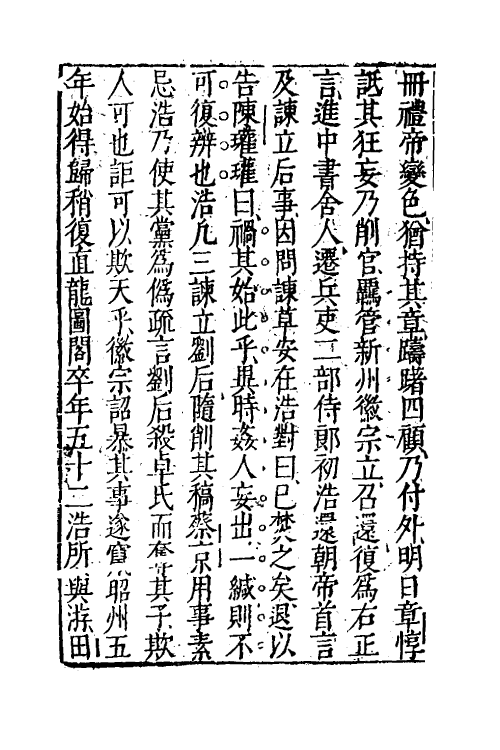 冊禮帝變色猶持其章躊躇四顧乃付外明日章惇
詆其狂妄乃削官羈管新州徽宗立召還復爲右正
言進中書舍人遷兵吏二部侍郎初浩還朝帝首言
及諫立后事因問諫草安在浩對曰已焚之矣退以
告陳瓘瓘曰禍其始此乎異時姦人妄出一緘則不
可復辨也浩凡三諫立劉后隨削其稿蔡京用事素
忌浩乃使其黨爲僞疏言劉后殺卓氏而奪其子欺
人可也詎可以欺天乎徽宗詔暴其事遂竄昭州五
年始得歸稍復直龍圖閣卒年五十二浩所與游田